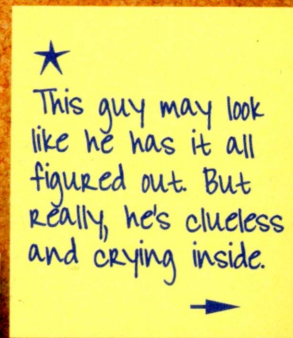 This guy may look
like he has it all
figured out. But
really, he's clueless
and crying inside.